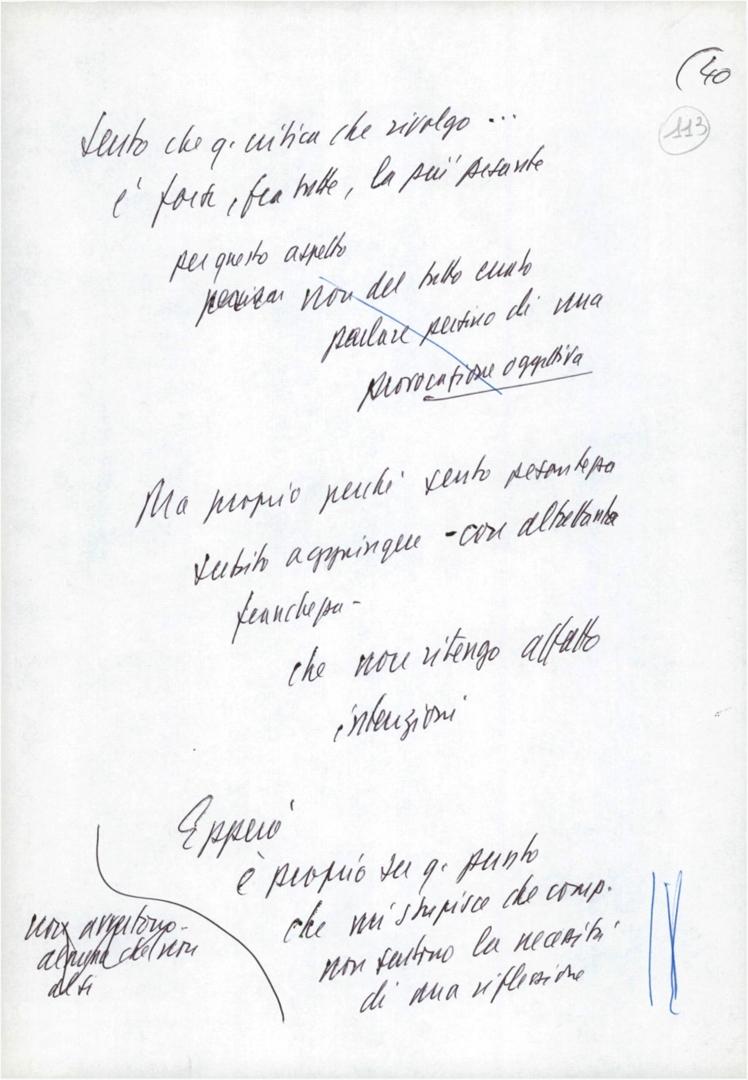 (40
113
Sento che q. critica che rivolgo ...
è forte, fra tutte, la più pesante
per questo aspetto
non del tutto
parlare persino di una
provocazione oggettiva
Ma proprio perché sento pesantezza
subito aggiungere - con altrettanta
franchezza -
che non ritengo affatto
intenzioni
Epperò
è proprio su q. punto
che mi stupisce che comp.
non sentono la necessità
di una riflessione
non avvertono -
che non
altri